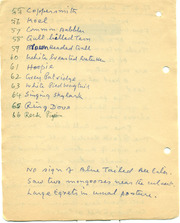 56 Coppersmith
57 Koel
57 Common Babbler
58 Gull billed Tern
59 Headed Gull
60 White breasted Kingfisher
61 Hoopoe
62 Grey Partridge
63 White
64 Singing Skylark
65 Ring Dove
66 Rock Pigeon
No sign of Blue Tailed Bee Eater.
Saw two mongooses near the culvert.
Large Egrets in usual posture.